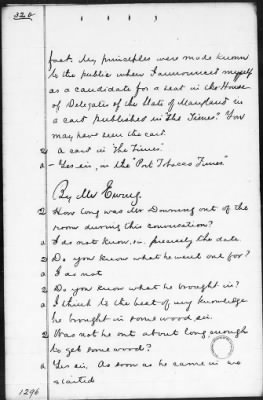 326
fact. My principles were made known
to the public when I announced myself
as a candidate for a seat in the House
of Delegates of the State of Maryland in
a card published in "The Times". You
may have seen the card.
Q A card in "The Times"
A - Yes sir, in the "Port Tobacco Times"
By Mr Ewing.
Q How long was Mr Downing out of the
room during this conversation?
A I do not know, sir, precisely the date.
Q Do you know what he went out for?
A I do not
Q Do you know what he brought in?
A I think to the best of my knowledge
he brought in some wood, sir.
Q Was not he out about long enough
to get some wood?
A Yes sir, As soon as he came in we
started
1296